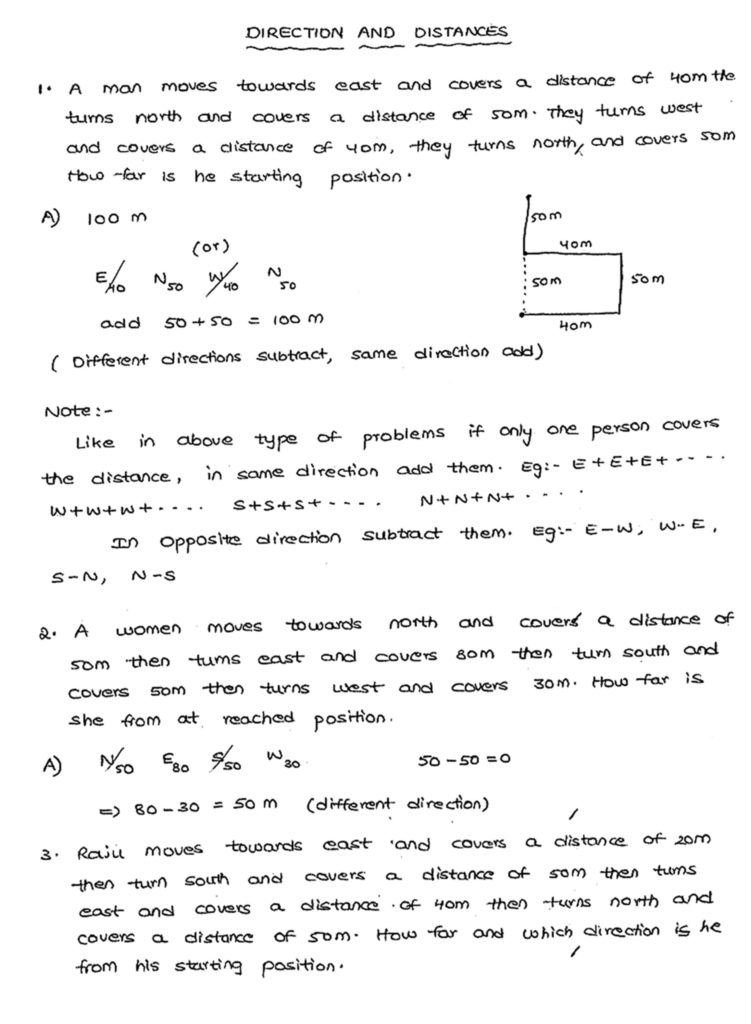 DIRECTION AND DISTANCES
1. A man moves towards east and covers a distance of 40m the
turns north and covers a distance of 50m. They turns west
and covers a distance of 40m, they turns north, and covers 50m
How far is he starting position.
A) 100 m
(or)
E/40 N50 W/40 N50
add 50 + 50 = 100 m
50m
40m
50m
50m
40m
( Different directions subtract, same direction add)
Note :-
Like in above type of problems if only one person covers
the distance, in same direction add them. Eg:- E+E+E+ ----
W+W+W+ .... S+S+S+ ---- N+N+N+ ....
In opposite direction subtract them. Eg:- E-W, W-E,
S-N, N-S
2. A women moves towards north and covers a distance of
50m then turns east and covers 80m then turn south and
covers 50m then turns west and covers 30m. How far is
she from at reached position.
A) N/50 E80 S/50 W30 50-50=0
=> 80-30 = 50 m (different direction)
3. Raju moves towards east and covers a distance of 20m
then turn south and covers a distance of 50m then turns
east and covers a distance of 40m then turns north and
covers a distance of 50m. How far and which direction is he
from his starting position.